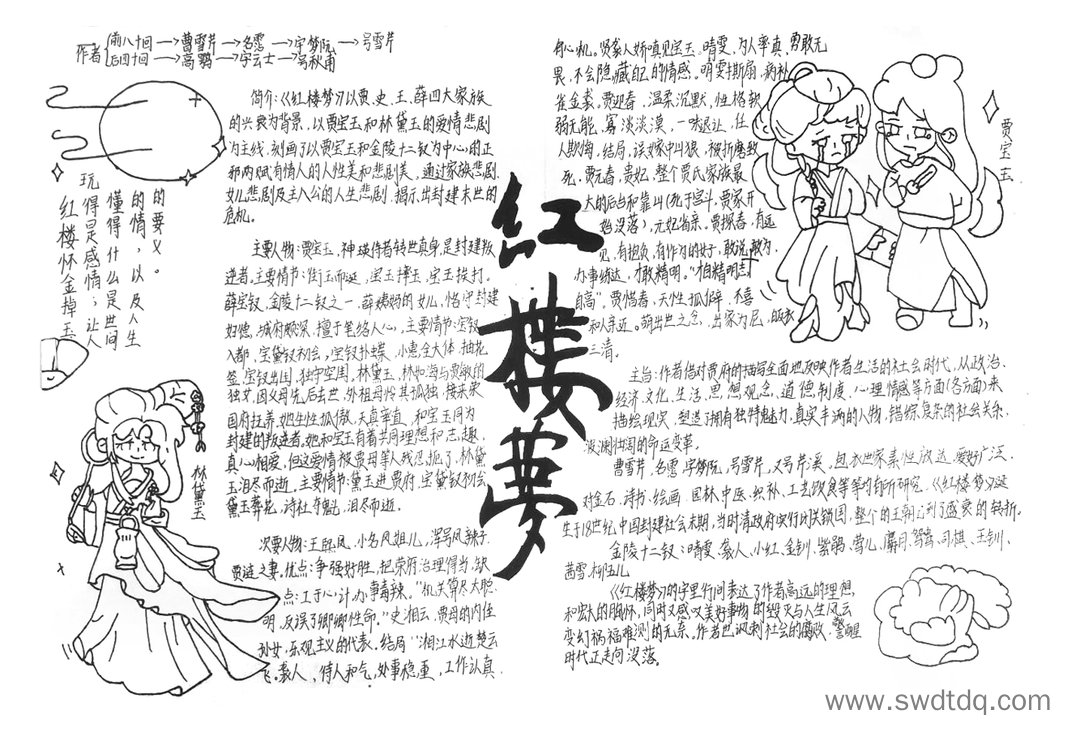 作者
前八十回→曹雪芹→名霑→字梦阮→号雪芹
后四十回→高鹗→字云士→号秋甫
简介:《红楼梦》以贾、史、王、薛四大家族
的兴衰为背景,以贾宝玉和林黛玉的爱情悲剧
为主线,刻画了以贾宝玉和金陵十二钗为中心的正
邪两赋有情人的人性美和悲剧美,通过家族悲剧、
女儿悲剧及主人公的人生悲剧,揭示出封建末世的
危机。
红楼怀金掉玉
玩得是感情;让人
懂得什么是世间
的情,以及人生
的要义。
主要人物:贾宝玉,神瑛侍者转世真身,是封建叛
逆者,主要情节:衔玉而诞,宝玉摔玉,宝玉挨打。
薛宝钗,金陵十二钗之一,薛姨妈的女儿,恪守封建
妇德,城府颇深,擅于笼络人心,主要情节:宝钗
入都,宝黛钗初会,宝钗扑蝶,小惠全大体,抽花
签,宝钗出闺,独守空闺。林黛玉,林如海与贾敏的
独女,因父母先后去世,外祖母怜其孤独,接来荣
国府抚养,她生性孤傲,天真率直,和宝玉同为
封建的叛逆者。她和宝玉有着共同理想和志趣,
真心相爱,但这爱情被贾母等人残忍扼了,林黛
玉泪尽而逝。主要情节:黛玉进贾府,宝黛钗初会,
黛玉葬花,诗社夺魁,泪尽而逝。
林黛玉
次要人物:王熙凤,小名凤姐儿,浑号凤辣子,
贾琏之妻。优点:争强好胜,把荣府治理得当,缺
点:工于心计,办事毒辣。"机关算尽太聪
明,反误了卿卿性命。"史湘云,贾母的内侄
孙女,乐观主义的代表。结局"湘江水逝楚云
飞。袭人,待人和气,处事稳重,工作认真,
红楼梦
有心机。贤袭人娇嗔见宝玉。晴雯,为人率真,勇敢无
畏,不会隐藏自己的情感。晴雯撕扇,病补
雀金裘。贾迎春,温柔沉默,性格软
弱无能,寡淡淡漠,一味退让,任
人欺侮,结局,误嫁中山狼,被折磨致
死。贾元春,贵妃,整个贾氏家族最
大的后台和靠山(死于宫斗,贾家开
始没落),元妃省亲。贾探春,有远
见,有抱负,有作为的女子,敢说敢为,
办事练达,才敢精明,"才自精明志
自高"。贾惜春,天性孤僻,不喜
和人亲近。萌出世之念,出家为尼,
三清。
贾宝玉
主旨:作者借对贾府的描写全面地反映作者生活的社会时代,从政治、
经济、文化、生活、思想观念、道德制度、心理情感等方面(各方面)来
描绘现实,塑造了拥有独特魅力,真实丰满的人物,错综复杂的社会关系,
波澜壮阔的命运变革。
曹雪芹,名霑,字梦阮,号雪芹,又号芹溪,包衣世家,素性放达,爱好广泛,
对金石、诗书、绘画、园林、中医、织补、工艺、饮食等等均有所研究。《红楼梦》诞
生于18世纪中国封建社会末期,当时清政府实行闭关锁国,整个的王朝到了盛衰的转折。
金陵十二钗:晴雯、袭人、小红、金钏、紫鹃、莺儿、麝月、鸳鸯、司棋、玉钏、
茜雪、柳五儿
《红楼梦》的字里行间表达了作者高远的理想
和宏大的胸怀,同时又感叹美好事物的毁灭与人生风云
变幻祸福难测的无奈,作者也讽刺社会的腐败,警醒
时代正走向没落。
www.swdtdq.com